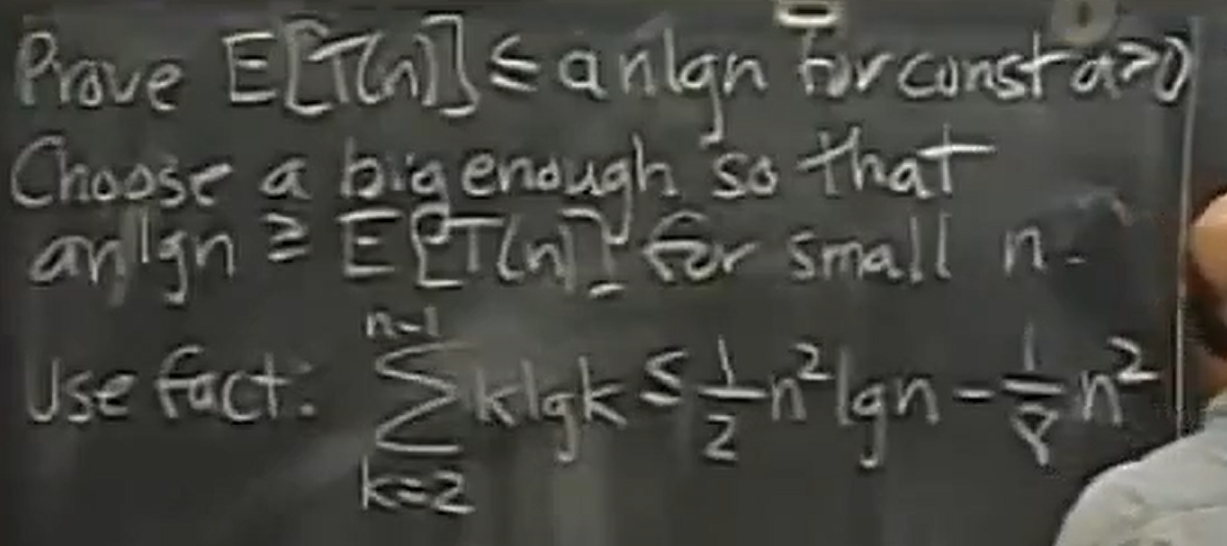 Prove E[T(n)] ≤ a n lg n for const a>0
Choose a big enough so that
an lg n ≥ E[T(n)] for small n.
Use fact: \sum_{k=2}^{n-1} k lg k ≤ \frac{1}{2} n² lg n - \frac{1}{8} n²